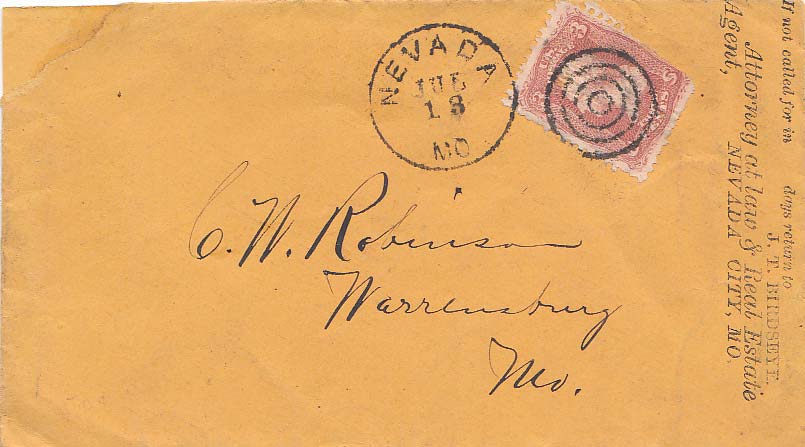 NEVADA
JUL
13
MO
C. W. Robinson
Warrensburg
Mo.
If not called for in days return to
J. T. BIRDSEYE,
Attorney at law & Real Estate
Agent, NEVADA CITY, MO.